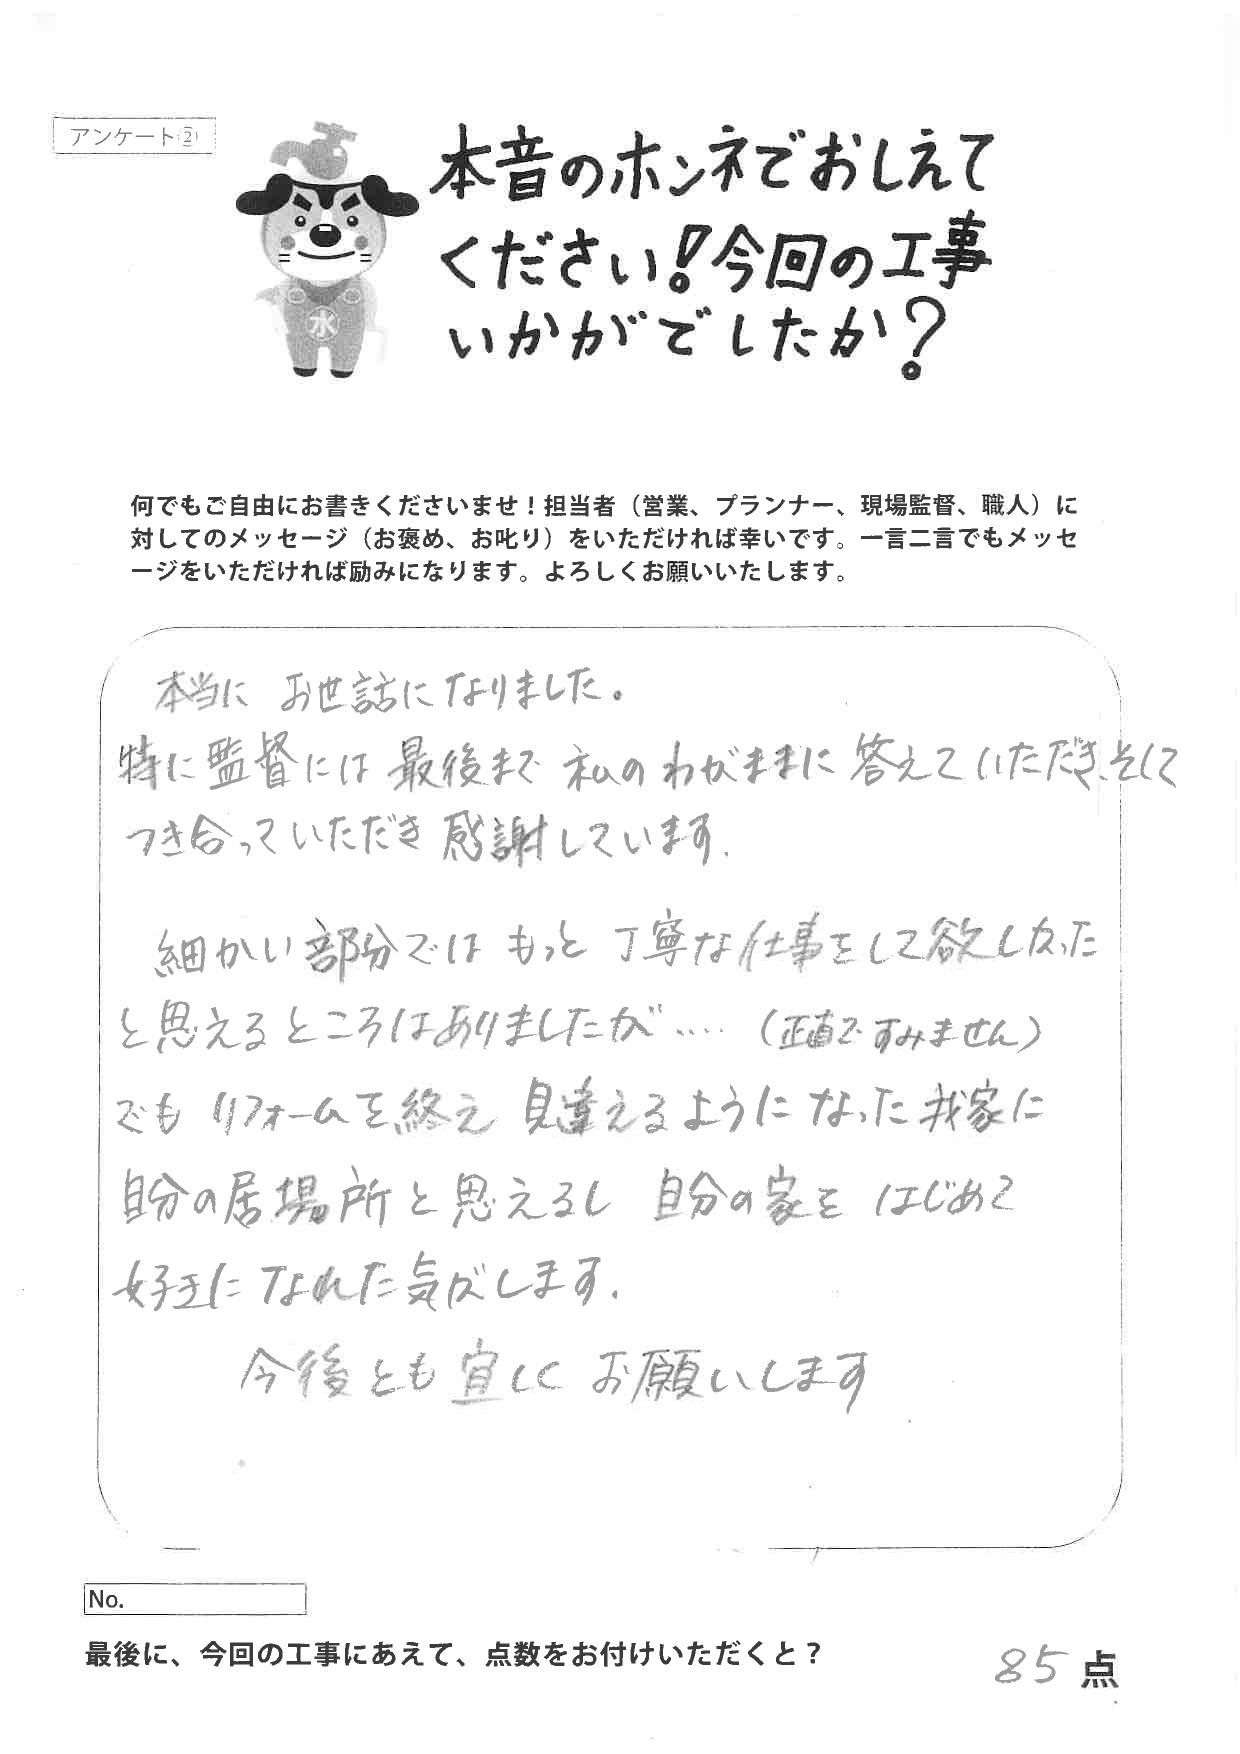 アンケート②
本音のホンネでおしえて
ください!今回の工事
いかがでしたか?
水
何でもご自由にお書きくださいませ!担当者(営業、プランナー、現場監督、職人)に
対してのメッセージ(お褒め、お叱り)をいただければ幸いです。一言二言でもメッセ
ージをいただければ励みになります。よろしくお願いいたします。
本当に お世話になりました。
特に監督には 最後まで 私のわがままに 答えていただき、そして
つき合っていただき 感謝しています.
細かい部分では もっと 丁寧な仕事をして欲しかった
と思えるところはありましたが…. (正直ですみません)
でも リフォームを終え 見違えるように なった 我家に
自分の居場所 と 思えるし 自分の家を はじめて
好きに なれた気がします.
今後とも 宜しく お願いします
No.
最後に、今回の工事にあえて、点数をお付けいただくと?
85 点